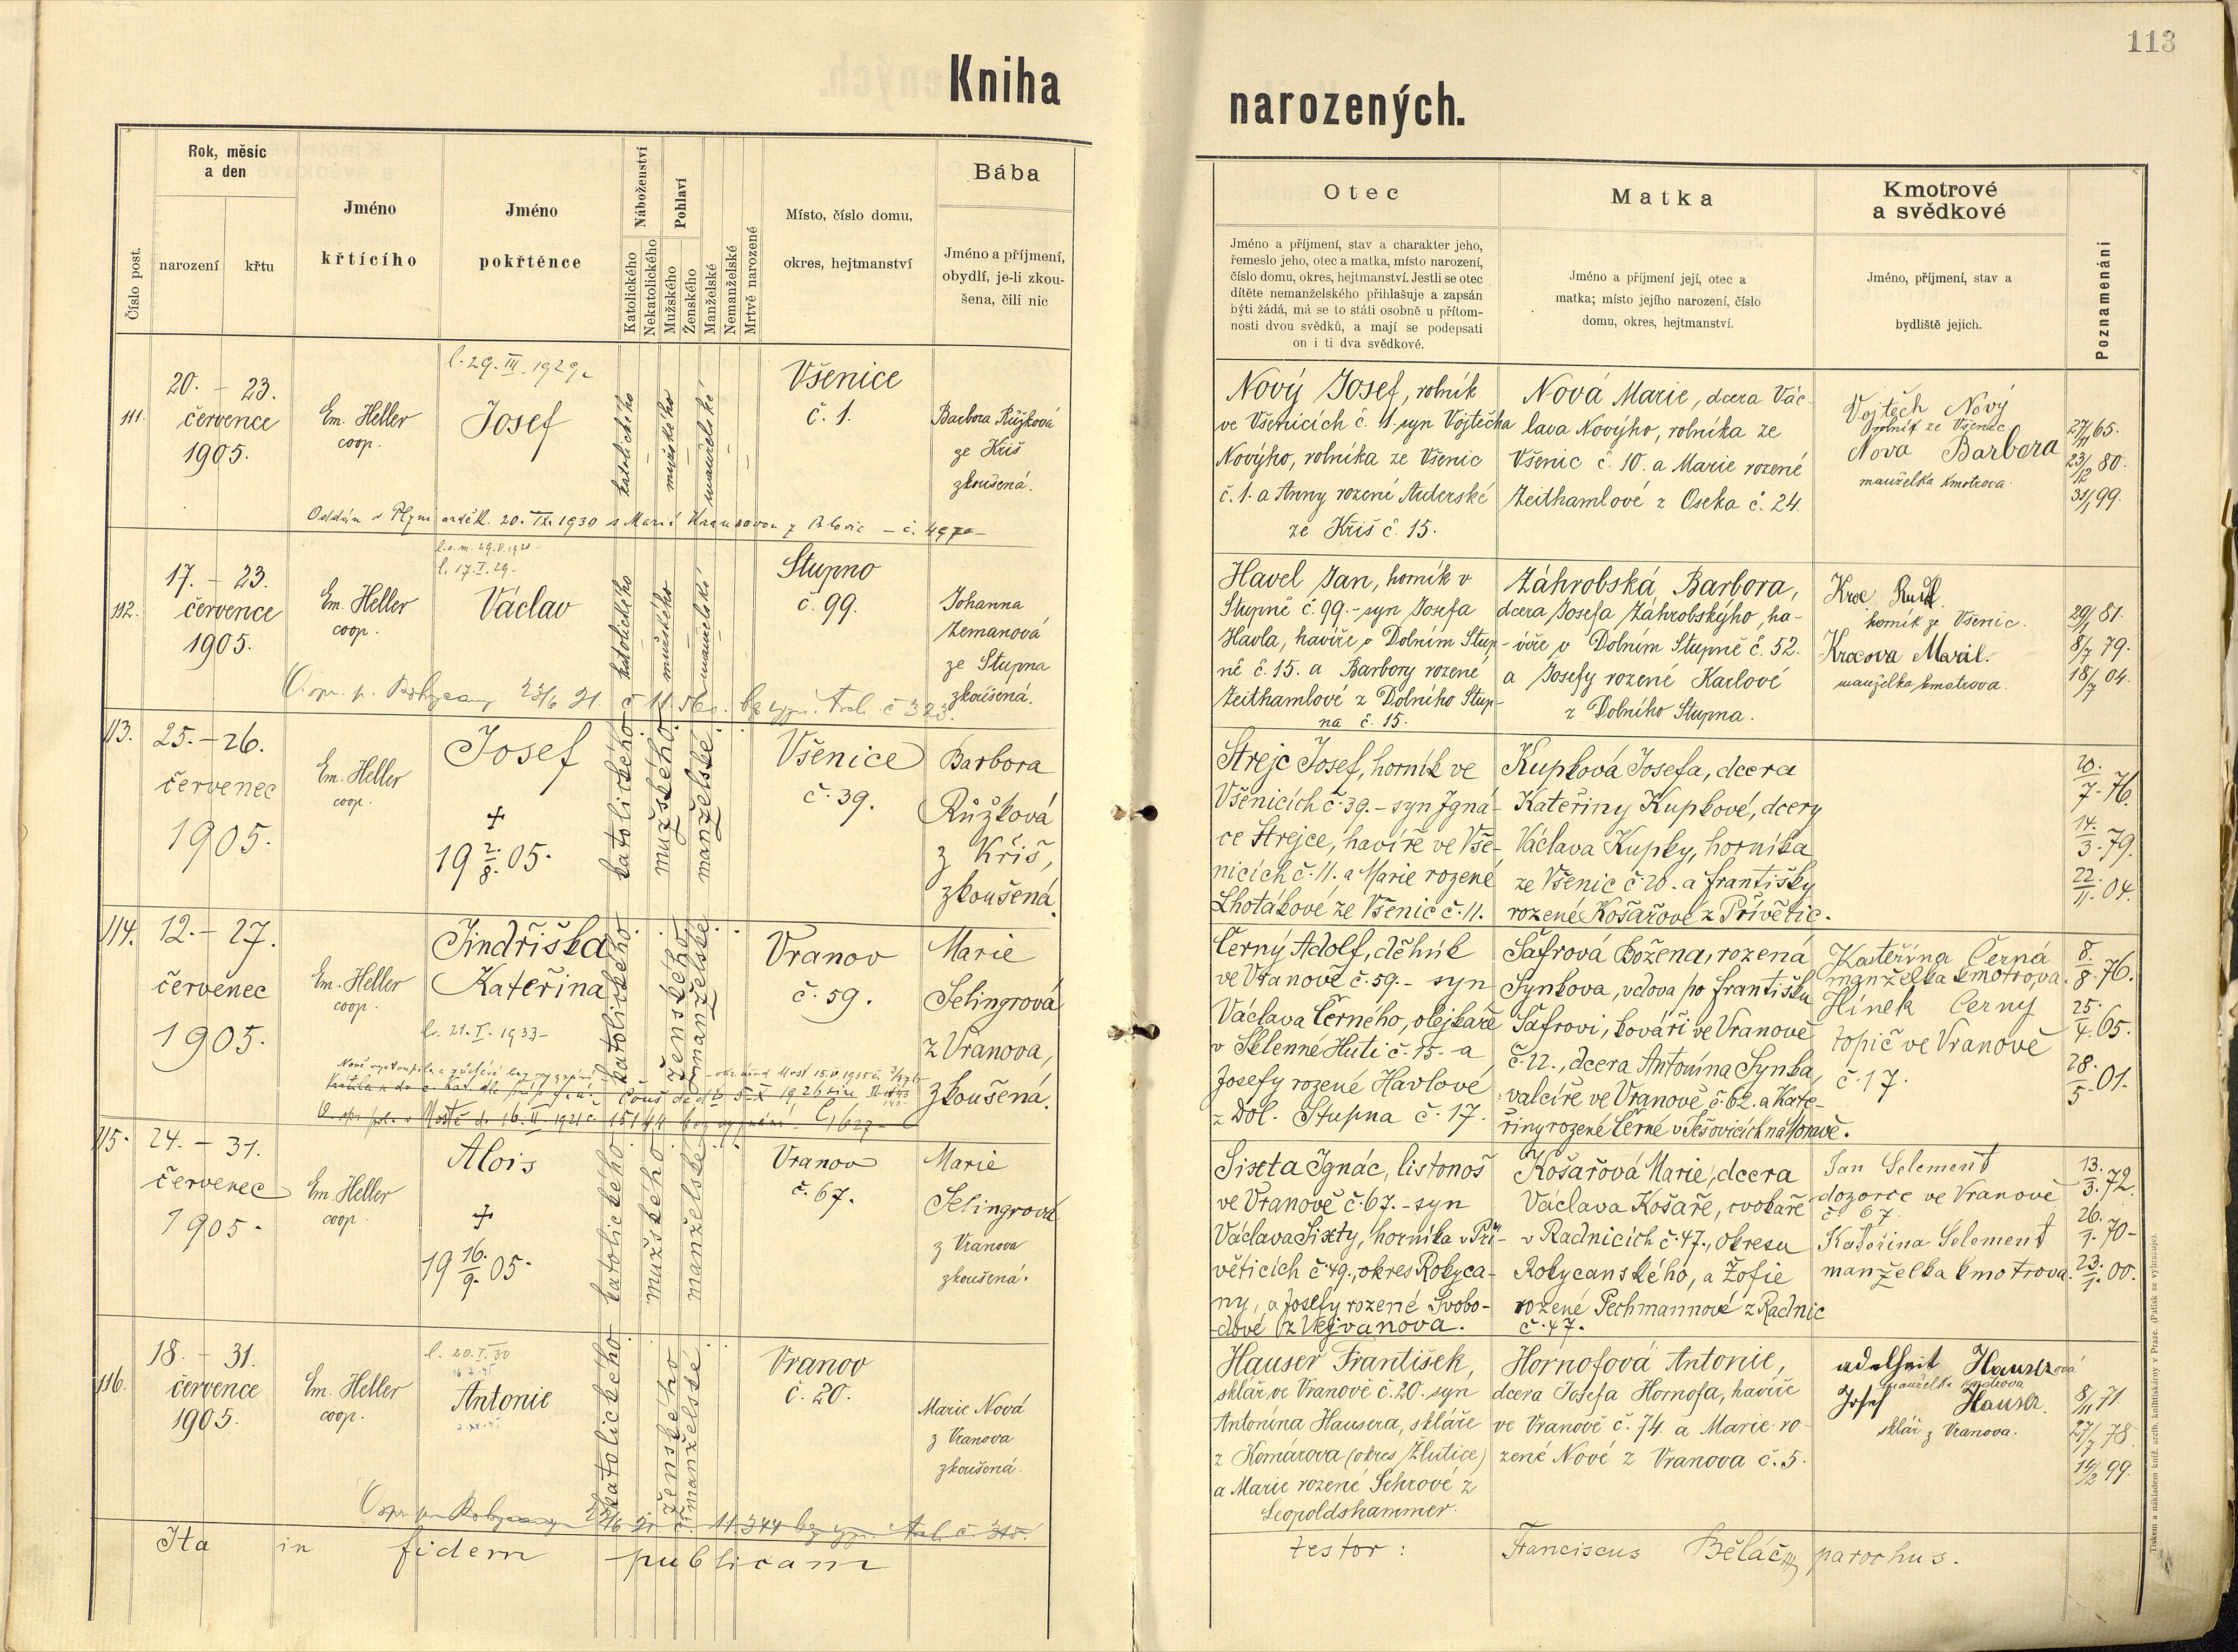 113
Kniha narozených.
Číslo post.
Rok, měsíc
a den
narození
křtu
Jméno
křtícího
Jméno
pokřtěnce
Náboženství
Katolického
Nekatolického
Pohlaví
Mužského
Ženského
Manželské
Nemanželské
Mrtvě narozené
Místo, číslo domu,
okres, hejtmanství
Bába
Jméno a příjmení,
obydlí, je-li zkou-
šena, čili nic
Otec
Jméno a příjmení, stav a charakter jeho,
řemeslo jeho, otec a matka, místo narození,
číslo domu, okres, hejtmanství. Jestli se otec
dítěte nemanželského přihlašuje a zapsán
býti žádá, má se to státi osobně u přítom-
nosti dvou svědků, a mají se podepsati
on i ti dva svědkové.
Matka
Jméno a příjmení její, otec a
matka; místo jejího narození, číslo
domu, okres, hejtmanství.
Kmotrové
a svědkové
Jméno, příjmení, stav a
bydliště jejich.
Poznamenání
111.
20. – 23.
července
1905.
Em. Heller
coop.
l. 29. III. 1929
Josef
katolického
mužského
manželské
Všenice
č. 1.
Barbora Růžková
ze Kříš
zkoušená.
Oddán v Plzni arděk. 20. IX. 1930 s Marií
Nový Josef, rolník
ve Všenicích č. 1. syn Vojtěcha
Novýho, rolníka ze Všenic
č. 1. a Anny rozené Auderské
ze Kříš č. 15.
Nová Marie, dcera Vác-
lava Novýho, rolníka ze
Všenic č. 10. a Marie rozené
Zeithamlové z Oseka č. 24.
Vojtěch Nový
rolník ze Všenic
Nova Barbora
manželka kmotrova.
27/11 65.
23/12 80.
31/1 99.
112.
17. – 23.
července
1905.
Em. Heller
coop.
l. 17. I. 29.
Václav
katolického
mužského
manželské
Stupno
č. 99.
Johanna
Zemanová
ze Stupna
zkoušená.
Havel Jan, horník v
Stupně č. 99. – syn Josefa
Havla, havíře v Dolním Stup-
ně č. 15. a Barbory rozené
Zeithamlové z Dolního Stup-
na č. 15.
Záhrobská Barbora,
dcera Josefa Záhrobskýho, ha-
víře v Dolním Stupně č. 52.
a Josefy rozené Karlové
z Dolního Stupna.
horník ze Všenic.
Krocova
manželka kmotrova.
29/1 81.
8/7 79.
18/7 04.
113.
25. – 26.
červenec
1905.
Em. Heller
coop.
Josef
+
19 2./8. 05.
katolického
mužského
manželské
Všenice
č. 39.
Barbora
Růžková
z Kříš,
zkoušená.
Strejc Josef, horník ve
Všenicích č. 39. – syn Igná-
ce Strejce, havíře ve Vše-
nicích č. 11. a Marie rozené
Lhotákové ze Všenic č. 11.
Kupková Josefa, dcera
Kateřiny Kupkové, dcery
Václava Kupky, horníka
ze Všenic č. 20. a Františky
rozené Košařové z Přívětic.
20./7. 76.
14./3. 79.
22./11. 04.
114.
12. – 27.
červenec
1905.
Em. Heller
coop.
Jindřiška
Kateřina
l. 21. I. 1933
katolického
ženského
manželské
Vranov
č. 59.
Marie
Selingrová
z Vranova,
zkoušená.
Černý Adolf, dělník
ve Vranově č. 59. – syn
Václava Černého, olejkaře
v Sklenné Huti č. 15. – a
Josefy rozené Havlové
z Dol. Stupna č. 17.
Šafrová Božena, rozená
Synkova, vdova po Františku
Šafrovi, kováři ve Vranově
č. 22., dcera Antonína Synka,
valcíře ve Vranově č. 62. a Kate-
řiny rozené Černé v Těšovicích na Moravě.
Kateřina Černá
manželka kmotrova.
Hínek Černy
topič ve Vranově
č. 17.
8./8. 76.
25./4. 65.
28./5. 01.
115.
24. – 31.
červenec
1905.
Em. Heller
coop.
Alois
+
19 16./9. 05.
katolického
mužského
manželské
Vranov
č. 67.
Marie
Selingrová
z Vranova
zkoušená.
Sixta Ignác, listonoš
ve Vranově č. 67. – syn
Václava Sixty, horníka v Pří-
věticích č. 49., okres Rokyca-
ny, a Josefy rozené Svobo-
dové z Vejvanova.
Košařová Marie, dcera
Václava Košaře, cvokaře
v Radnicích č. 47., okresu
Rokycanského, a Žofie
rozené Pechmannové z Radnic
č. 47.
Jan Selement
dozorce ve Vranově
č. 67
Kateřina Selement
manželka kmotrova.
13./3. 72.
26./1. 70.
23./1. 00.
116.
18. – 31.
července
1905.
Em. Heller
coop.
l. 20. I. 30
Antonie
katolického
ženského
manželské
Vranov
č. 20.
Marie Nová
z Vranova
zkoušená.
Hauser František,
sklář ve Vranově č. 20. syn
Antonína Hausera, skláře
z Komárova (okres Žlutice)
a Marie rozené Sehrové z
Leopoldshammer.
Hornofová Antonie,
dcera Josefa Hornofa, havíře
ve Vranově č. 74. a Marie ro-
zené Nové z Vranova č. 5.
adelheit Hauserová
manželka kmotrova
Josef Hauser.
sklář z Vranova.
8/11 71.
27/7 78.
14/2 99.
Ita in fidem publicam
testor: Franciscus Běláč, parochus.
Tiskem a nákladem kníž. arcib. knihtiskárny v Praze. (Patisk se vyhrazuje).